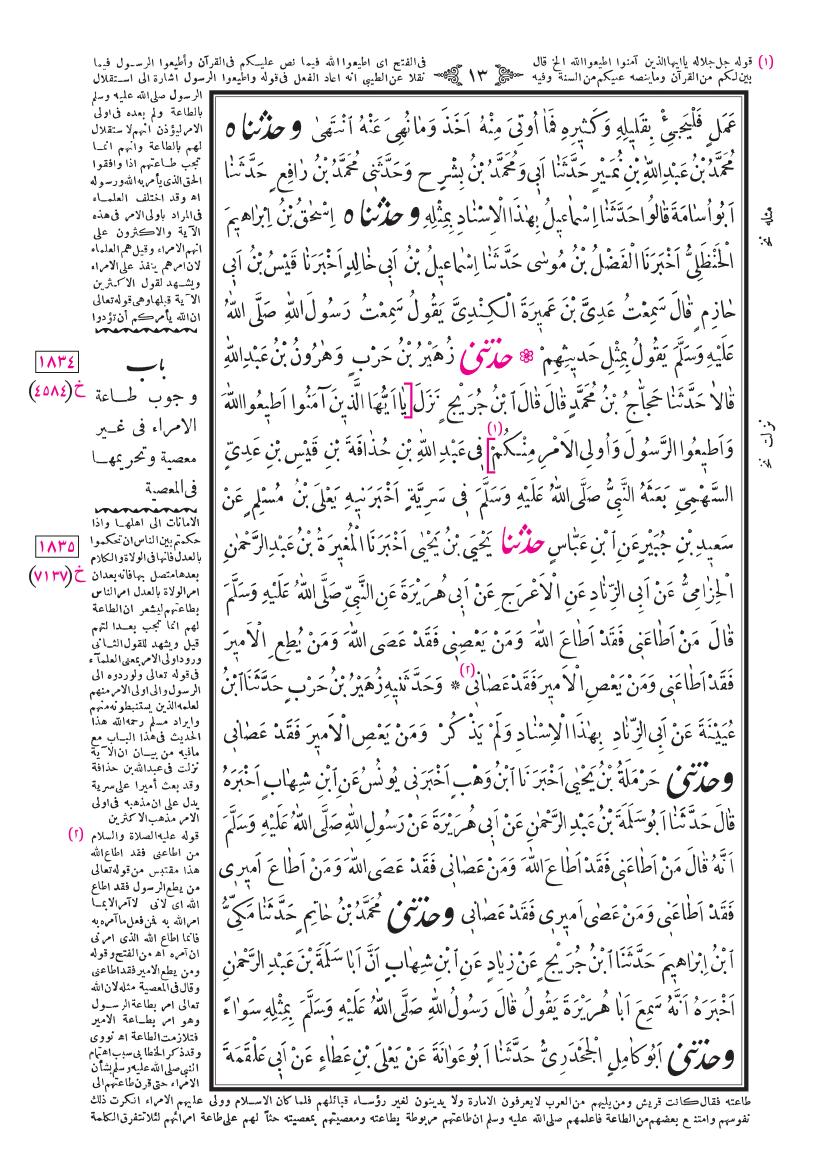 (١) قوله جل جلاله ياايها الذين آمنوا اطيعوا الله الخ قال
بين لكم من القرآن وما ينصه عليكم من السنة وفيه
١٣
فى الفتح اى اطيعوا الله فيما نص عليكم فى القرآن وأطيعوا الرسول فيما
نقلا عن الطيبى انه اعاد الفعل فى قوله واطيعوا الرسول اشارة الى استقلال
عَمَلٍ فَلْيَجِئْ بِقَلِيلِهِ وَكَثِيرِهِ فَمَا اُوتِىَ مِنْهُ اَخَذَ وَمَا نُهِىَ عَنْهُ اَنْتَهٰى وحدثناه
مُحَمَّدُ بْنُ عَبْدِ اللّٰهِ بْنِ نُمَيْرٍ حَدَّثَنَا اَبِى وَمُحَمَّدُ بْنُ بِشْرٍ ح وَحَدَّثَنِى مُحَمَّدُ بْنُ رَافِعٍ حَدَّثَنَا
اَبُو اُسَامَةَ قَالُوا حَدَّثَنَا اِسْمَاعِيلُ بِهٰذَا الْاِسْنَادِ بِمِثْلِهِ وحدثناه اِسْحٰقُ بْنُ اِبْرَاهِيمَ
الْحَنْظَلِىُّ اَخْبَرَنَا الْفَضْلُ بْنُ مُوسٰى حَدَّثَنَا اِسْمَاعِيلُ بْنُ اَبِى خَالِدٍ اَخْبَرَنَا قَيْسُ بْنُ اَبِى
حَازِمٍ قَالَ سَمِعْتُ عَدِىَّ بْنَ عَمِيرَةَ الْكِنْدِىَّ يَقُولُ سَمِعْتُ رَسُولَ اللّٰهِ صَلَّى اللّٰهُ
عَلَيْهِ وَسَلَّمَ يَقُولُ بِمِثْلِ حَدِيثِهِمْ ❁ حدثنى زُهَيْرُ بْنُ حَرْبٍ وَهٰرُونُ بْنُ عَبْدِ اللّٰهِ
قَالَا حَدَّثَنَا حَجَّاجُ بْنُ مُحَمَّدٍ قَالَ قَالَ ابْنُ جُرَيْجٍ نَزَلَ [يَا اَيُّهَا الَّذِينَ آمَنُوا اَطِيعُوا اللّٰهَ
وَاَطِيعُوا الرَّسُولَ وَاُولِى الْاَمْرِ مِنْكُمْ](١) فِى عَبْدِ اللّٰهِ بْنِ حُذَافَةَ بْنِ قَيْسِ بْنِ عَدِىٍّ
السَّهْمِىِّ بَعَثَهُ النَّبِىُّ صَلَّى اللّٰهُ عَلَيْهِ وَسَلَّمَ فِى سَرِيَّةٍ اَخْبَرَنِيهِ يَعْلَى بْنُ مُسْلِمٍ عَنْ
سَعِيدِ بْنِ جُبَيْرٍ عَنِ ابْنِ عَبَّاسٍ حدثنا يَحْيَى بْنُ يَحْيٰى اَخْبَرَنَا الْمُغِيرَةُ بْنُ عَبْدِ الرَّحْمٰنِ
الْحِزَامِىُّ عَنْ اَبِى الزِّنَادِ عَنِ الْاَعْرَجِ عَنْ اَبِى هُرَيْرَةَ عَنِ النَّبِىِّ صَلَّى اللّٰهُ عَلَيْهِ وَسَلَّمَ
قَالَ مَنْ اَطَاعَنِى فَقَدْ اَطَاعَ اللّٰهَ وَمَنْ يَعْصِنِى فَقَدْ عَصَى اللّٰهَ وَمَنْ يُطِعِ الْاَمِيرَ
فَقَدْ اَطَاعَنِى وَمَنْ يَعْصِ الْاَمِيرَ فَقَدْ عَصَانِى(٢) * وَحَدَّثَنِيهِ زُهَيْرُ بْنُ حَرْبٍ حَدَّثَنَا ابْنُ
عُيَيْنَةَ عَنْ اَبِى الزِّنَادِ بِهٰذَا الْاِسْنَادِ وَلَمْ يَذْكُرْ وَمَنْ يَعْصِ الْاَمِيرَ فَقَدْ عَصَانِى
وحدثنى حَرْمَلَةُ بْنُ يَحْيٰى اَخْبَرَنَا ابْنُ وَهْبٍ اَخْبَرَنِى يُونُسُ عَنِ ابْنِ شِهَابٍ اَخْبَرَهُ
قَالَ حَدَّثَنَا اَبُو سَلَمَةَ بْنُ عَبْدِ الرَّحْمٰنِ عَنْ اَبِى هُرَيْرَةَ عَنْ رَسُولِ اللّٰهِ صَلَّى اللّٰهُ عَلَيْهِ وَسَلَّمَ
اَنَّهُ قَالَ مَنْ اَطَاعَنِى فَقَدْ اَطَاعَ اللّٰهَ وَمَنْ عَصَانِى فَقَدْ عَصَى اللّٰهَ وَمَنْ اَطَاعَ اَمِيرِى
فَقَدْ اَطَاعَنِى وَمَنْ عَصٰى اَمِيرِى فَقَدْ عَصَانِى وحدثنى مُحَمَّدُ بْنُ حَاتِمٍ حَدَّثَنَا مَكِّىُّ
ابْنُ اِبْرَاهِيمَ حَدَّثَنَا ابْنُ جُرَيْجٍ عَنْ زِيَادٍ عَنِ ابْنِ شِهَابٍ اَنَّ اَبَا سَلَمَةَ بْنَ عَبْدِ الرَّحْمٰنِ
اَخْبَرَهُ اَنَّهُ سَمِعَ اَبَا هُرَيْرَةَ يَقُولُ قَالَ رَسُولُ اللّٰهِ صَلَّى اللّٰهُ عَلَيْهِ وَسَلَّمَ بِمِثْلِهِ سَوَاءً
وحدثنى اَبُو كَامِلٍ الْجَحْدَرِىُّ حَدَّثَنَا اَبُو عَوَانَةَ عَنْ يَعْلَى بْنِ عَطَاءٍ عَنْ اَبِى عَلْقَمَةَ
مثله نخ
نزلت نخ
الرسول صلى الله عليه وسلم
بالطاعة ولم يعده فى اولى
الامر ليؤذن انهم لا ستقلال
لهم بالطاعة وانهم انما
تجب طاعتهم اذا وافقوا
الحق الذى يأمر به الله ورسوله
اه وقد اختلف العلماء
فى المراد باولى الامر فى هذه
الآية والاكثرون على
انهم الامراء وقيل هم العلماء
لان امرهم ينفذ على الامراء
ويشهد لقول الاكثرين
الآية قبلها وهى قوله تعالى
ان الله يأمركم أن تؤدوا
باب
وجوب طاعة
الامراء فى غير
معصية وتحريمها
فى المعصية
١٨٣٤
خ(٤٥٨٤)
١٨٣٥
خ(٧١٣٧)
الامانات الى اهلها واذا
حكمتم بين الناس ان تحكموا
بالعدل فانها فى الولاة والكلام
بعدها متصل بها فانه بعد ان
امر الولاة بالعدل امر الناس
بطاعتهم ليشعر ان الطاعة
لهم انما تجب بعدالتهم
قيل ويشهد للقول الثانى
ورود اولى الامر بمعنى العلماء
فى قوله تعالى ولو ردوه الى
الرسول والى اولى الامر منهم
لعلمه الذين يستنبطونه منهم
وايراد مسلم رحمه الله هذا
الحديث فى هذا الباب مع
مافيه من بيان ان الآية
نزلت فى عبدالله بن حذافة
وقد بعث أميرا على سرية
يدل على ان مذهبه فى اولى
الامر مذهب الاكثرين
(٢) قوله عليه الصلاة والسلام
من اطاعنى فقد اطاع الله
هذا مقتبس من قوله تعالى
من يطع الرسول فقد اطاع
الله اى لانى لا آمر الا بما
امر الله به فمن فعل ما آمره به
فانما اطاع الله الذى امرنى
ان آمره اه من الفتح وقوله
ومن يطع الامير فقد اطاعنى
وقال فى المعصية مثله لان الله
تعالى امر بطاعة الرسول
وهو امر بطاعة الامير
فتلازمت الطاعة اه نووى
وقد ذكر الخطابى سبب اهتمام
النبى صلى الله عليه وسلم بشأن
الامراء حتى قرن طاعتهم الى
طاعته فقال كانت قريش ومن يليهم من العرب لايعرفون الامارة ولا يدينون لغير رؤساء قبائلهم فلما كان الاسلام وولى عليهم الامراء انكرت ذلك
نفوسهم وامتنع بعضهم من الطاعة فاعلمهم صلى الله عليه وسلم ان طاعتهم مربوطة بطاعته ومعصيتهم بمعصيته حثا لهم على طاعة امرائهم لئلا تتفرق الكلمة